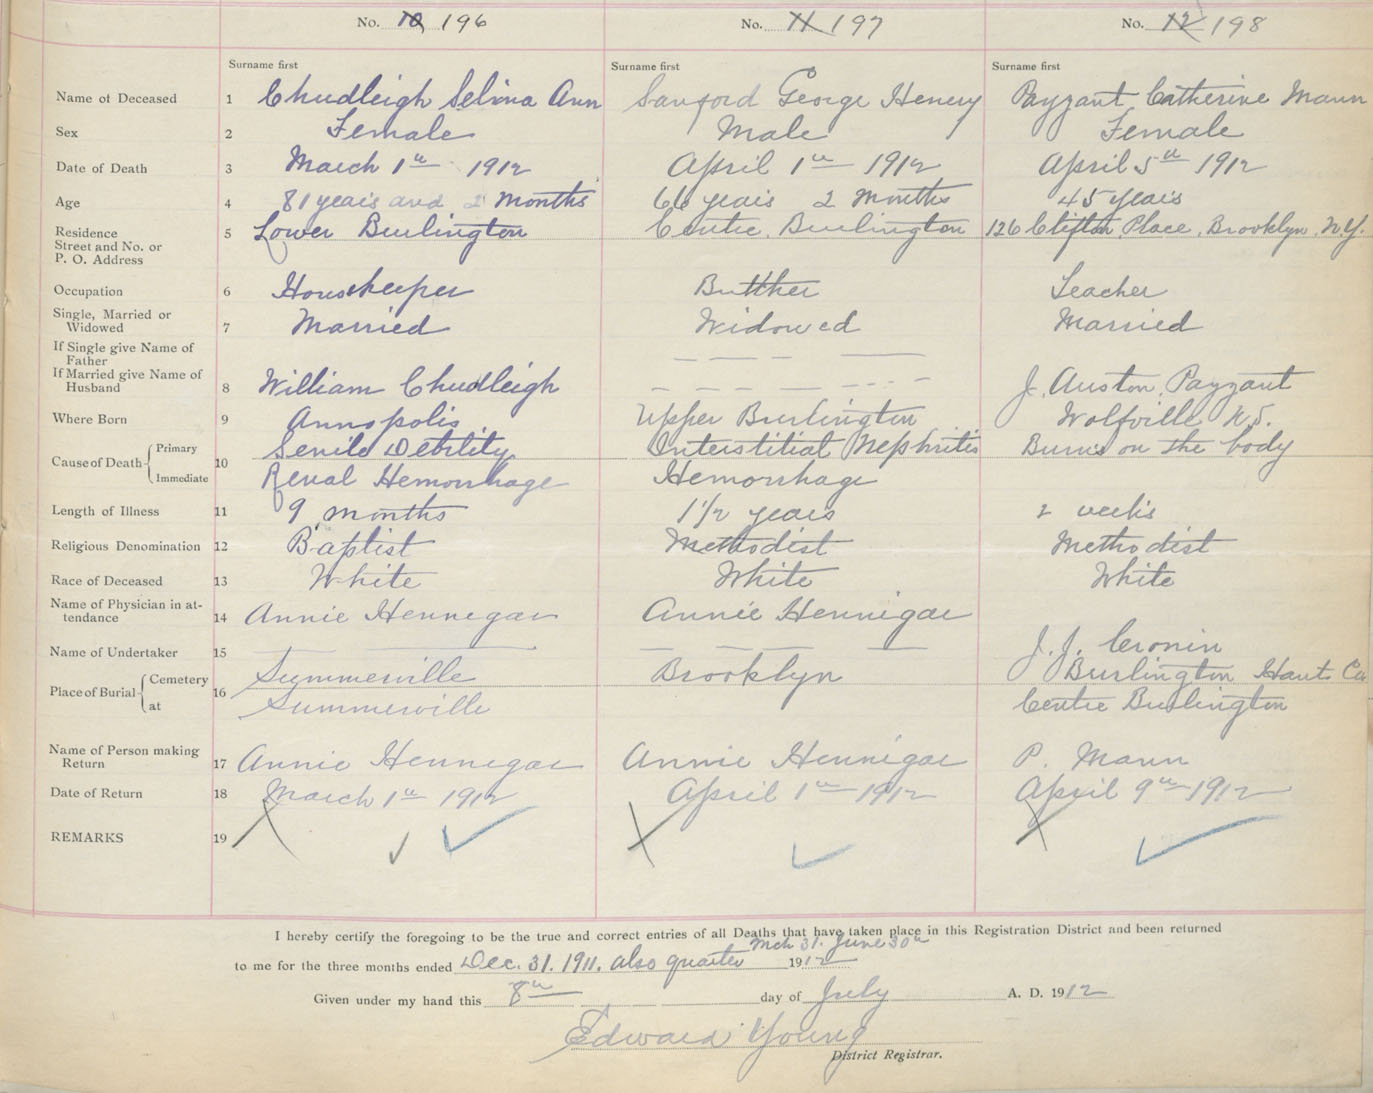 No. 10 196 No. 11 197 No. 12 198
Surname first Surname first Surname first
Name of Deceased 1 Chudleigh Selina Ann Sanford George Henery Payzant Catherine Mann
Sex 2 Female Male Female
Date of Death 3 March 1st 1912 April 1st 1912 April 5th 1912
Age 4 81 years and 2 months 66 years 2 months 45 years
Residence 5 Lower Burlington Centre Burlington 126 Clifton Place, Brooklyn. N.Y.
Street and No. or
P. O. Address
Occupation 6 Housekeeper Butcher Teacher
Single, Married or
Widowed 7 Married Widowed Married
If Single give Name of
Father
If Married give Name of
Husband 8 William Chudleigh J. Auston Payzant
Where Born 9 Annopolis Upper Burlington Wolfville N.S.
Cause of Death Primary 10 Senile Debility Interstitial Nephritis Burns on the body
Immediate Renal Hemorrhage Hemorrhage
Length of Illness 11 9 months 1 1/2 years 2 weeks
Religious Denomination 12 Baptist Methodist Methodist
Race of Deceased 13 White White White
Name of Physician in at-
tendance 14 Annie Hennegar Annie Hennigar
Name of Undertaker 15 J. J. Cronin
Place of Burial Cemetery 16 Summerville Brooklyn Burlington Hant. Co
at Summerville Centre Burlington
Name of Person making
Return 17 Annie Hennegar Annie Hennigar P. Mann
Date of Return 18 March 1st 1912 April 1st 1912 April 9th 1912
REMARKS 19
I hereby certify the foregoing to be the true and correct entries of all Deaths that have taken place in this Registration District and been returned
Mch 31. June 30th
to me for the three months ended Dec. 31. 1911. also quarter 1912
Given under my hand this 8th day of July A. D. 1912
Edward Young
District Registrar.